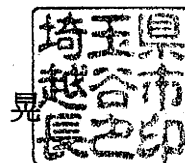 晃
埼玉県
越谷市
長之印